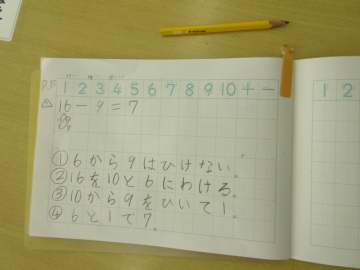 P.35
1 2 3 4 5 6 7 8 9 10 + −
1 2
16 − 9 = 7
①6から9はひけない。
②16を10と6にわける。
③10から9をひいて1。
④6と1で7。